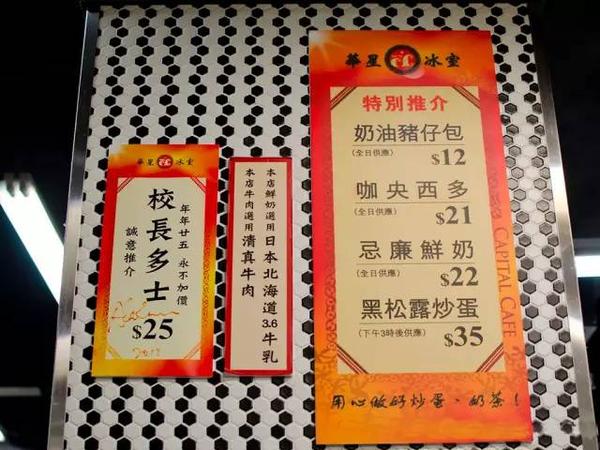 華星冰室
校長多士
年年廿五 永不加價
誠意推介
$25
本店鮮奶選用日本北海道3.6牛乳
本店牛肉選用清真牛肉
華星冰室
特別推介
奶油豬仔包
(全日供應)
$12
咖央西多
(全日供應)
$21
忌廉鮮奶
(全日供應)
$22
黑松露炒蛋
(下午3時後供應)
$35
CAPITAL CAFE
用心做好炒蛋、奶茶!